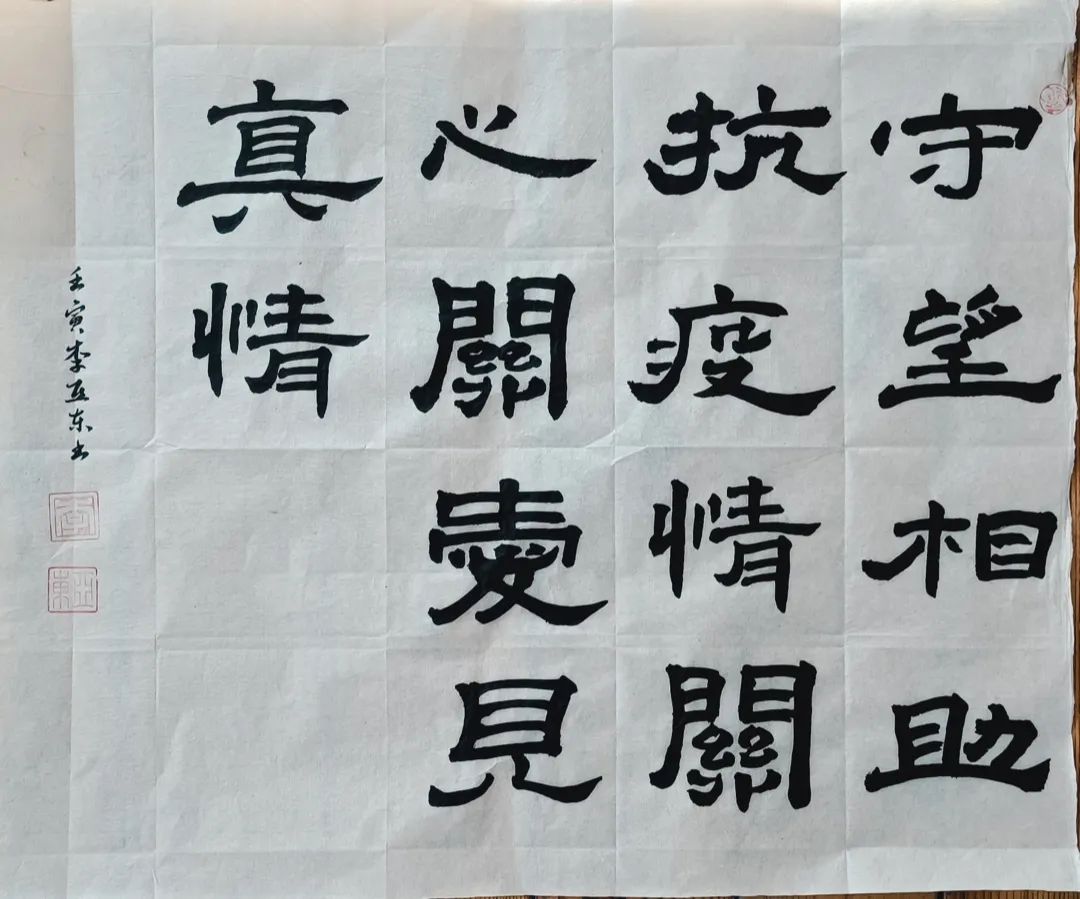 守望相助
抗疫情關
心關愛見
真情
壬寅李亚东书